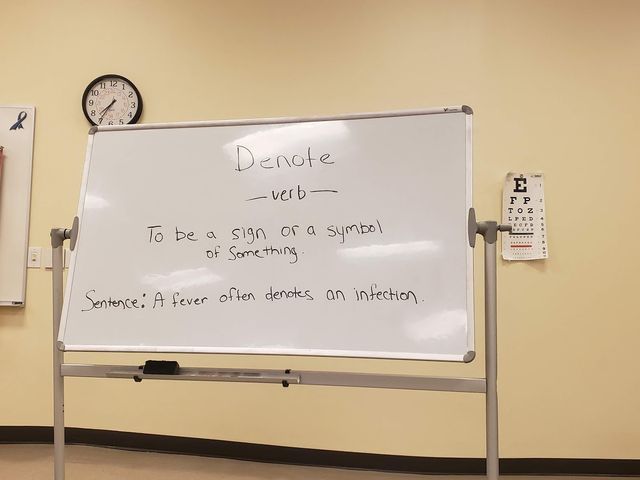 Denote
— verb —
To be a sign or a symbol
of something.
Sentence: A fever often denotes an infection.
11 12 1
10 2
9 3
8 4
E
F P
T O Z
L P E D